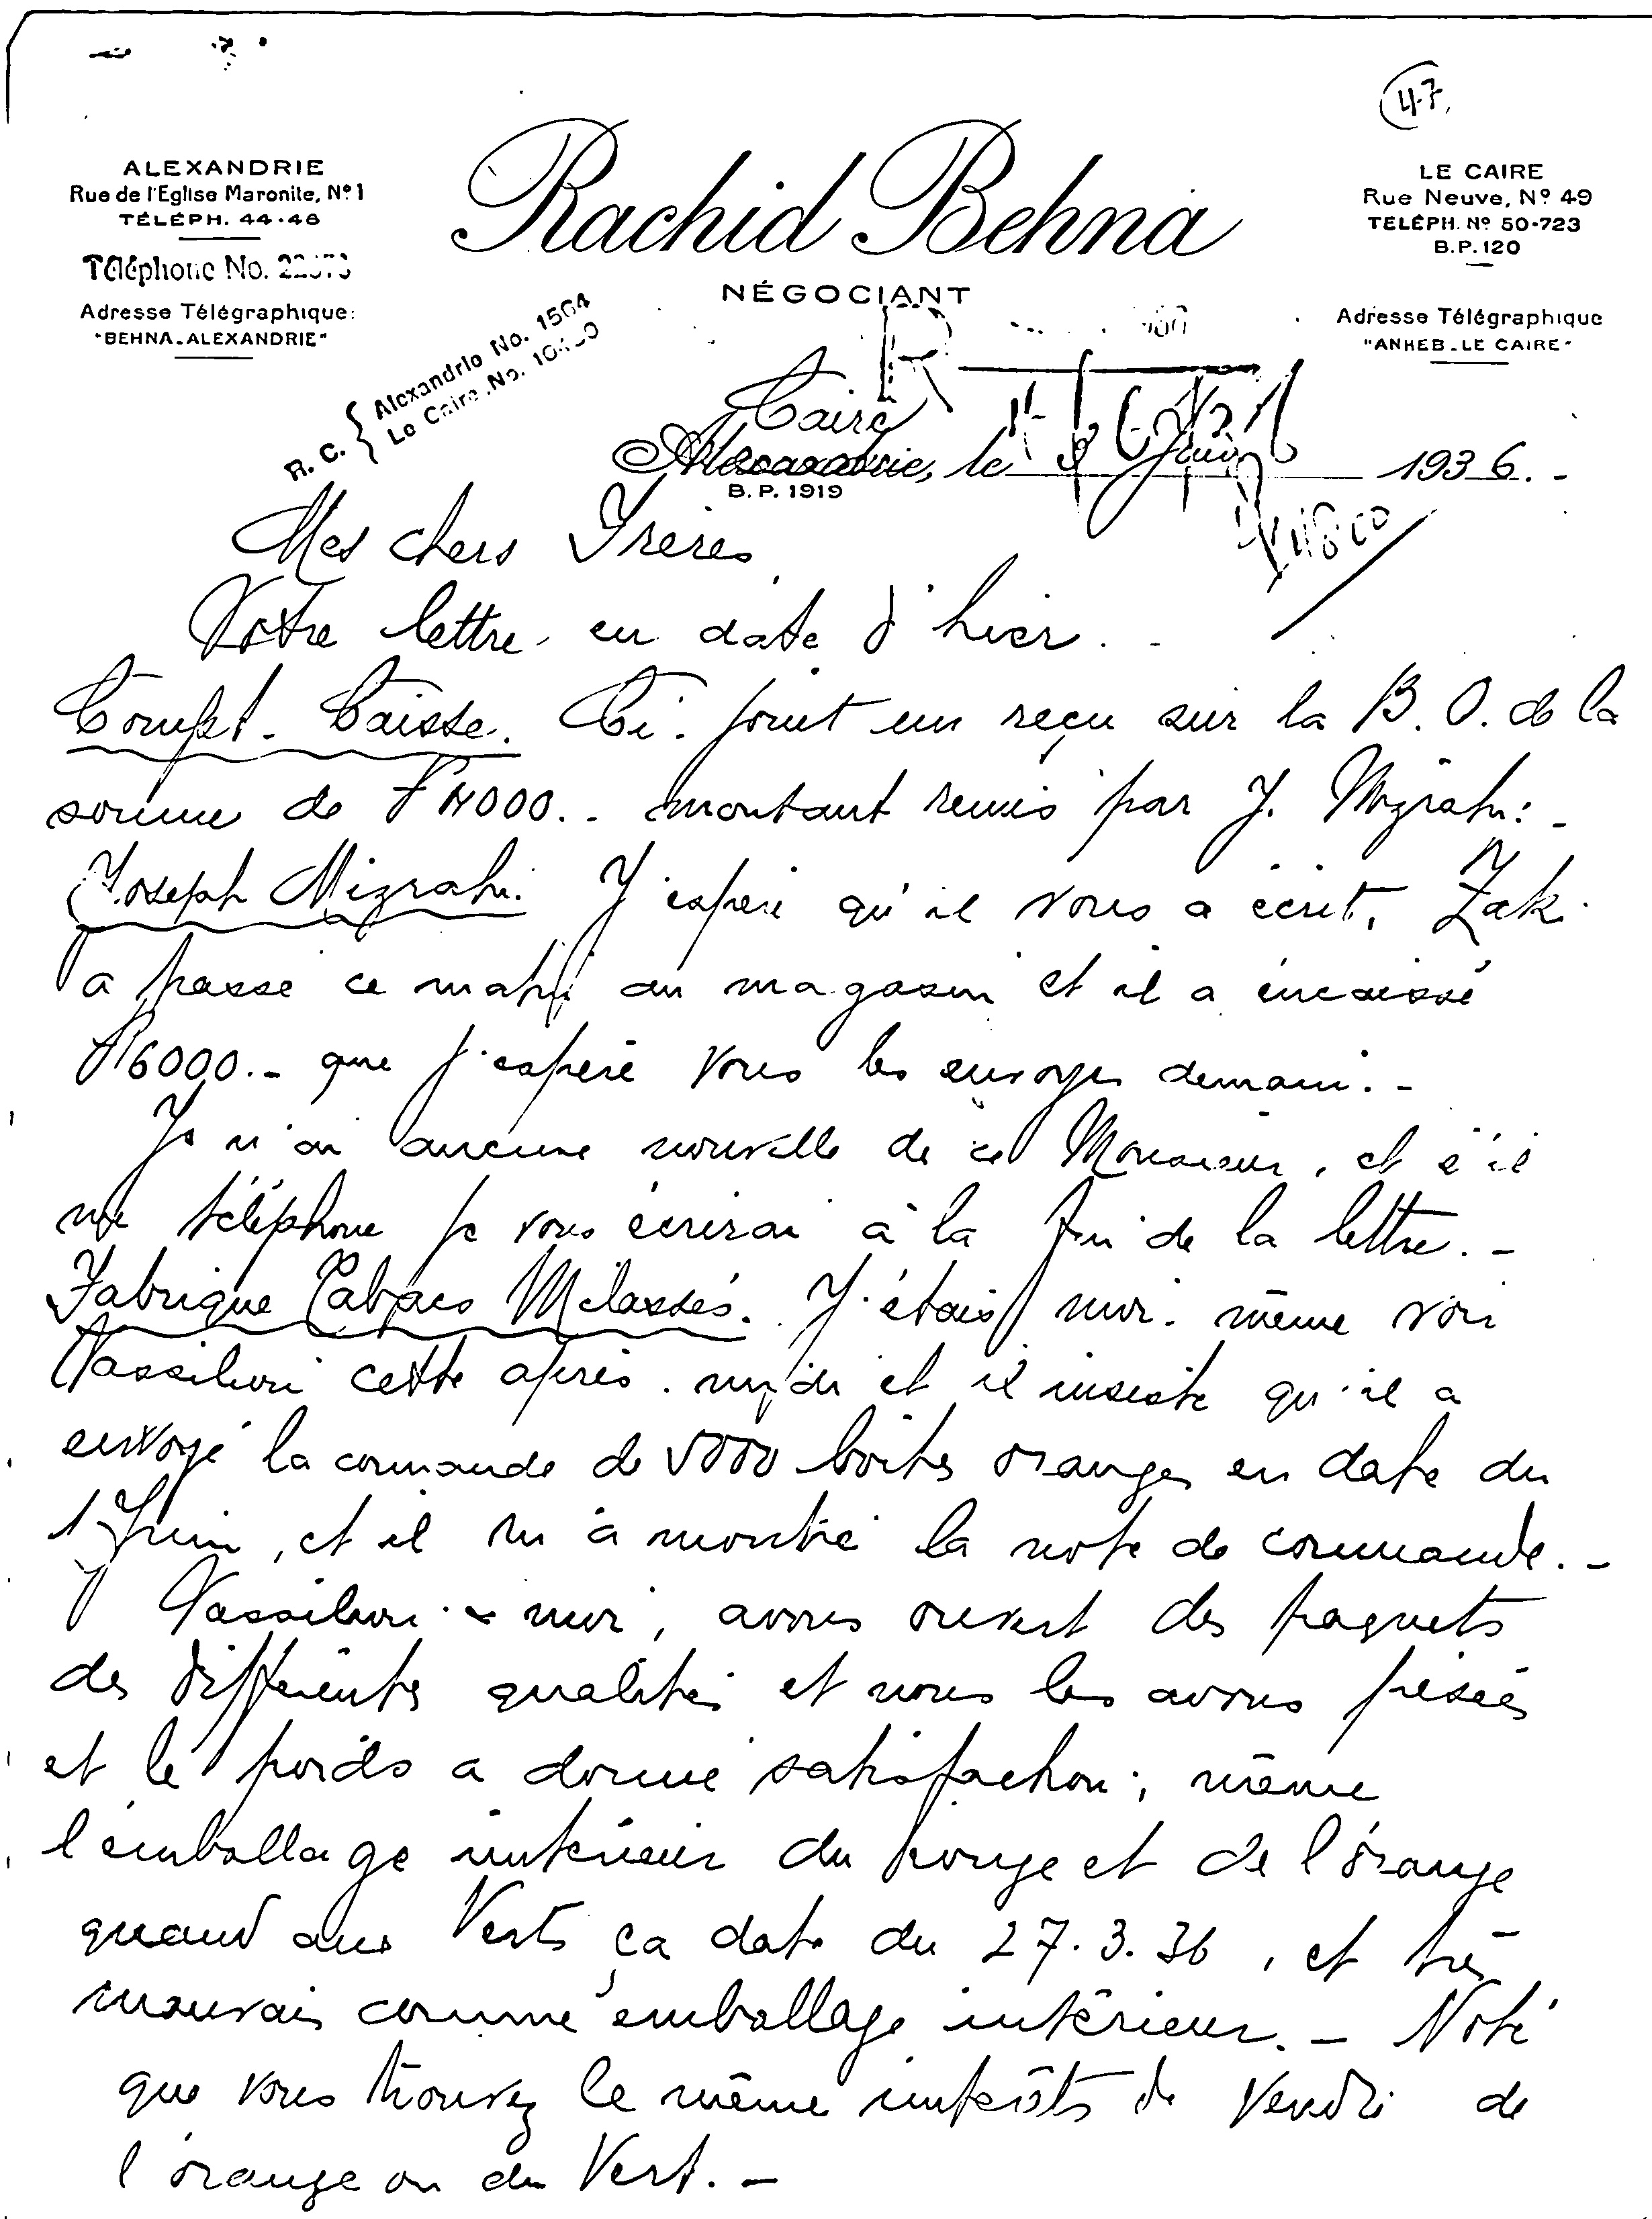 47.
ALEXANDRIE
Rue de l'Eglise Maronite, Nº 1
TÉLÉPH. 44-46
Téléphone No.
Adresse Télégraphique:
"BEHNA-ALEXANDRIE"
Rachid Behna
NÉGOCIANT
LE CAIRE
Rue Neuve, Nº 49
TELÉPH. Nº 50-723
B.P. 120
Adresse Télégraphique
"ANHEB-LE CAIRE"
R. C. { Alexandrie No. 1564
Le Caire No.
Caire
Alexandrie, le Juin 1936.-
B. P. 1919
Mes chers Frères
Votre lettre en date d'hier. -
Compt. Caisse. Ci. joint un reçu sur la B. O. de la
somme de 4000.- montant remis par J. Mizrahi:-
Joseph Mizrahi. J'espère qu'il vous a écrit, Zaki
a passé ce matin au magasin et il a encaissé
6000.- que j'espère vous les envoyer demain.-
Je n'ai aucune nouvelle de ce Monsieur, et s'il
me téléphone je vous écrirai à la fin de la lettre.-
Fabrique Tabacs Mélassés. J'étais moi-même voir
Vassiliou cette après.midi et il insiste qu'il a
envoyé la commande de 5000 boites oranges en date du
1 Juin, et il m'a montré la note de commande.-
Vassiliou & moi, avons ouvert des paquets
des différentes qualités et nous les avons pesés
et le poids a donné satisfaction; même
l'emballage intérieur du rouge et de l'orange
quand aux Verts ça date du 27.3.36, et très
mauvais comme emballage intérieur.- Noté
que vous trouvez le même intérêts de vendre de
l'orange ou du Vert.-